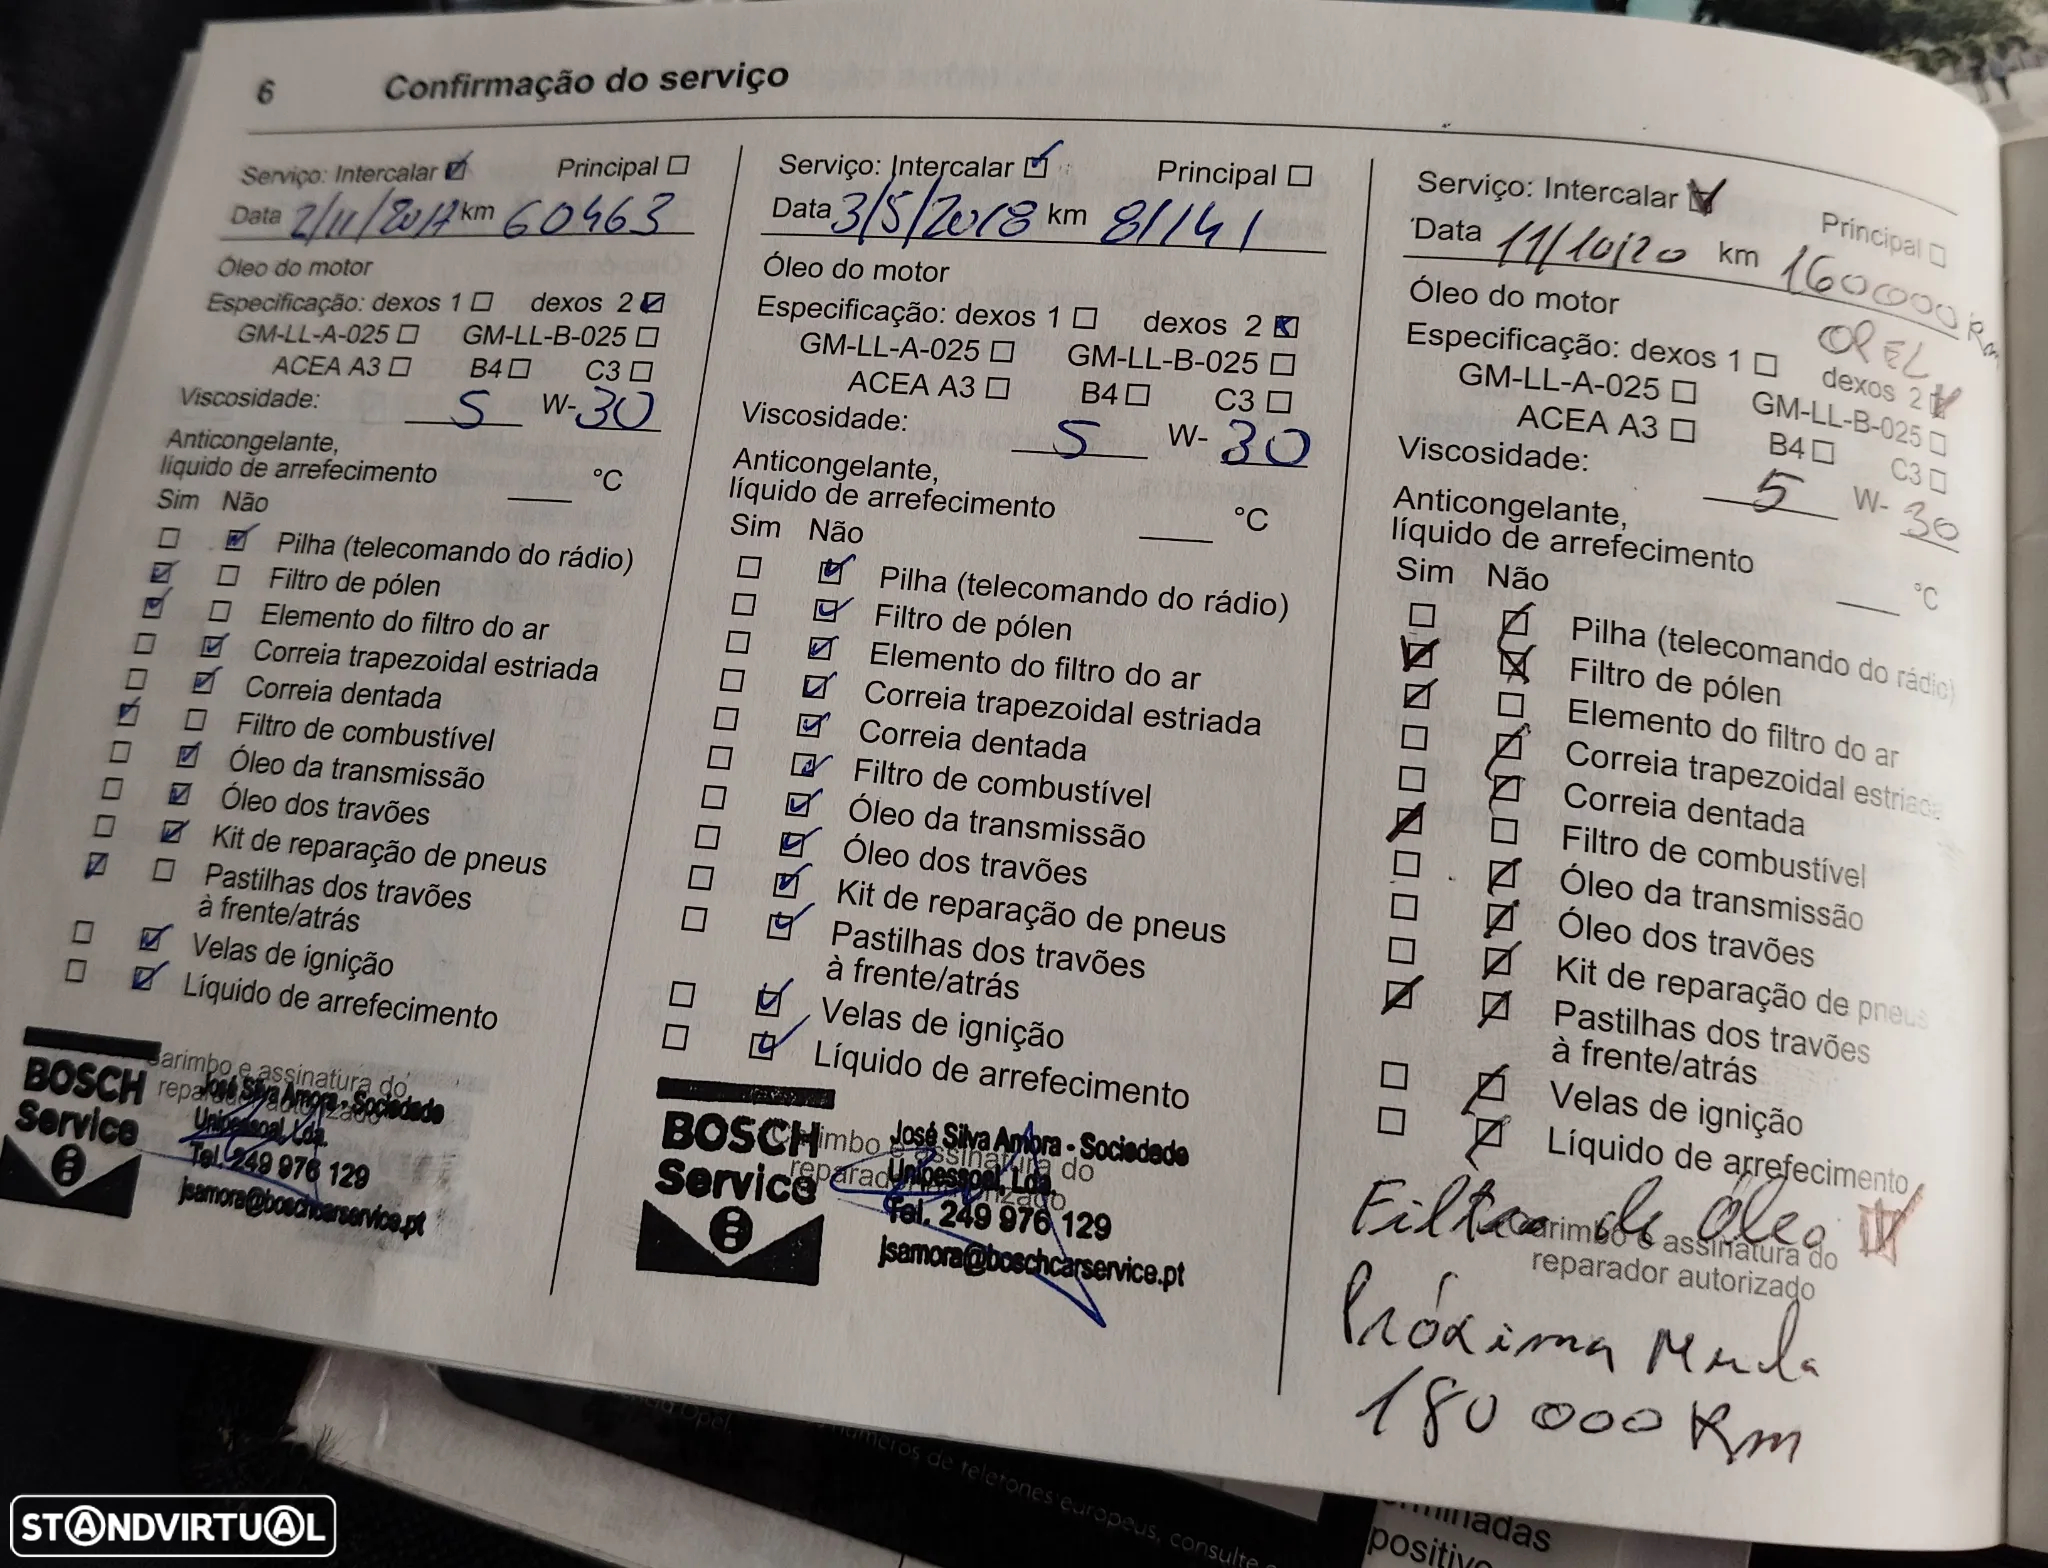 6 Confirmação do serviço
Serviço: Intercalar Principal
Data 2/11/2017 km 60463
Óleo do motor
Especificação: dexos 1 dexos 2
GM-LL-A-025 GM-LL-B-025
ACEA A3 B4 C3
Viscosidade: 5 W-30
Anticongelante,
líquido de arrefecimento °C
Sim Não
Pilha (telecomando do rádio)
Filtro de pólen
Elemento do filtro do ar
Correia trapezoidal estriada
Correia dentada
Filtro de combustível
Óleo da transmissão
Óleo dos travões
Kit de reparação de pneus
Pastilhas dos travões
à frente/atrás
Velas de ignição
Líquido de arrefecimento
Carimbo e assinatura do
reparador autorizado
BOSCH
Service
José Silva Amora - Sociedade
Unipessoal, Lda.
Tel. 249 976 129
jsamora@boschcarservice.pt
Serviço: Intercalar Principal
Data 3/5/2018 km 81141
Óleo do motor
Especificação: dexos 1 dexos 2
GM-LL-A-025 GM-LL-B-025
ACEA A3 B4 C3
Viscosidade: 5 W-30
Anticongelante,
líquido de arrefecimento °C
Sim Não
Pilha (telecomando do rádio)
Filtro de pólen
Elemento do filtro do ar
Correia trapezoidal estriada
Correia dentada
Filtro de combustível
Óleo da transmissão
Óleo dos travões
Kit de reparação de pneus
Pastilhas dos travões
à frente/atrás
Velas de ignição
Líquido de arrefecimento
Carimbo e assinatura do
reparador autorizado
BOSCH
Service
José Silva Amora - Sociedade
Unipessoal, Lda.
Tel. 249 976 129
jsamora@boschcarservice.pt
Serviço: Intercalar Principal
Data 11/10/20 km 160000 Km
Óleo do motor OPEL
Especificação: dexos 1 dexos 2
GM-LL-A-025 GM-LL-B-025
ACEA A3 B4 C3
Viscosidade: 5 W-30
Anticongelante,
líquido de arrefecimento °C
Sim Não
Pilha (telecomando do rádio)
Filtro de pólen
Elemento do filtro do ar
Correia trapezoidal estriada
Correia dentada
Filtro de combustível
Óleo da transmissão
Óleo dos travões
Kit de reparação de pneus
Pastilhas dos travões
à frente/atrás
Velas de ignição
Líquido de arrefecimento
Filtro de Óleo
Carimbo e assinatura do
reparador autorizado
Próxima Muda
180 000 Km
Opel,
números de telefones europeus, consulte
positivo
STANDVIRTUAL